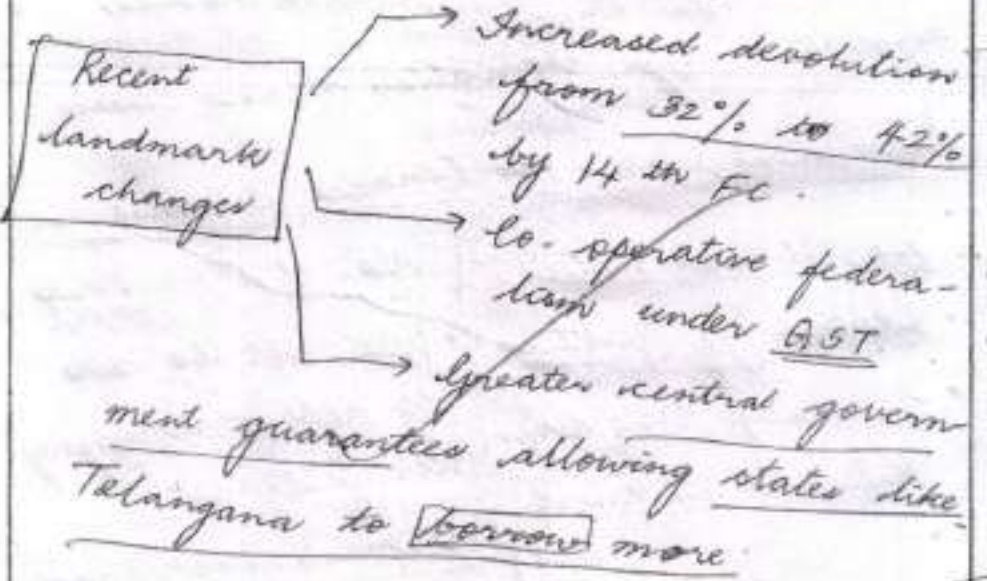 Recent
landmark
changes
Increased devolution
from 32% to 42%
by 14 th FC.
Co-operative federa-
lism under GST
Greater central govern
ment guarantees allowing states like
Telangana to borrow more